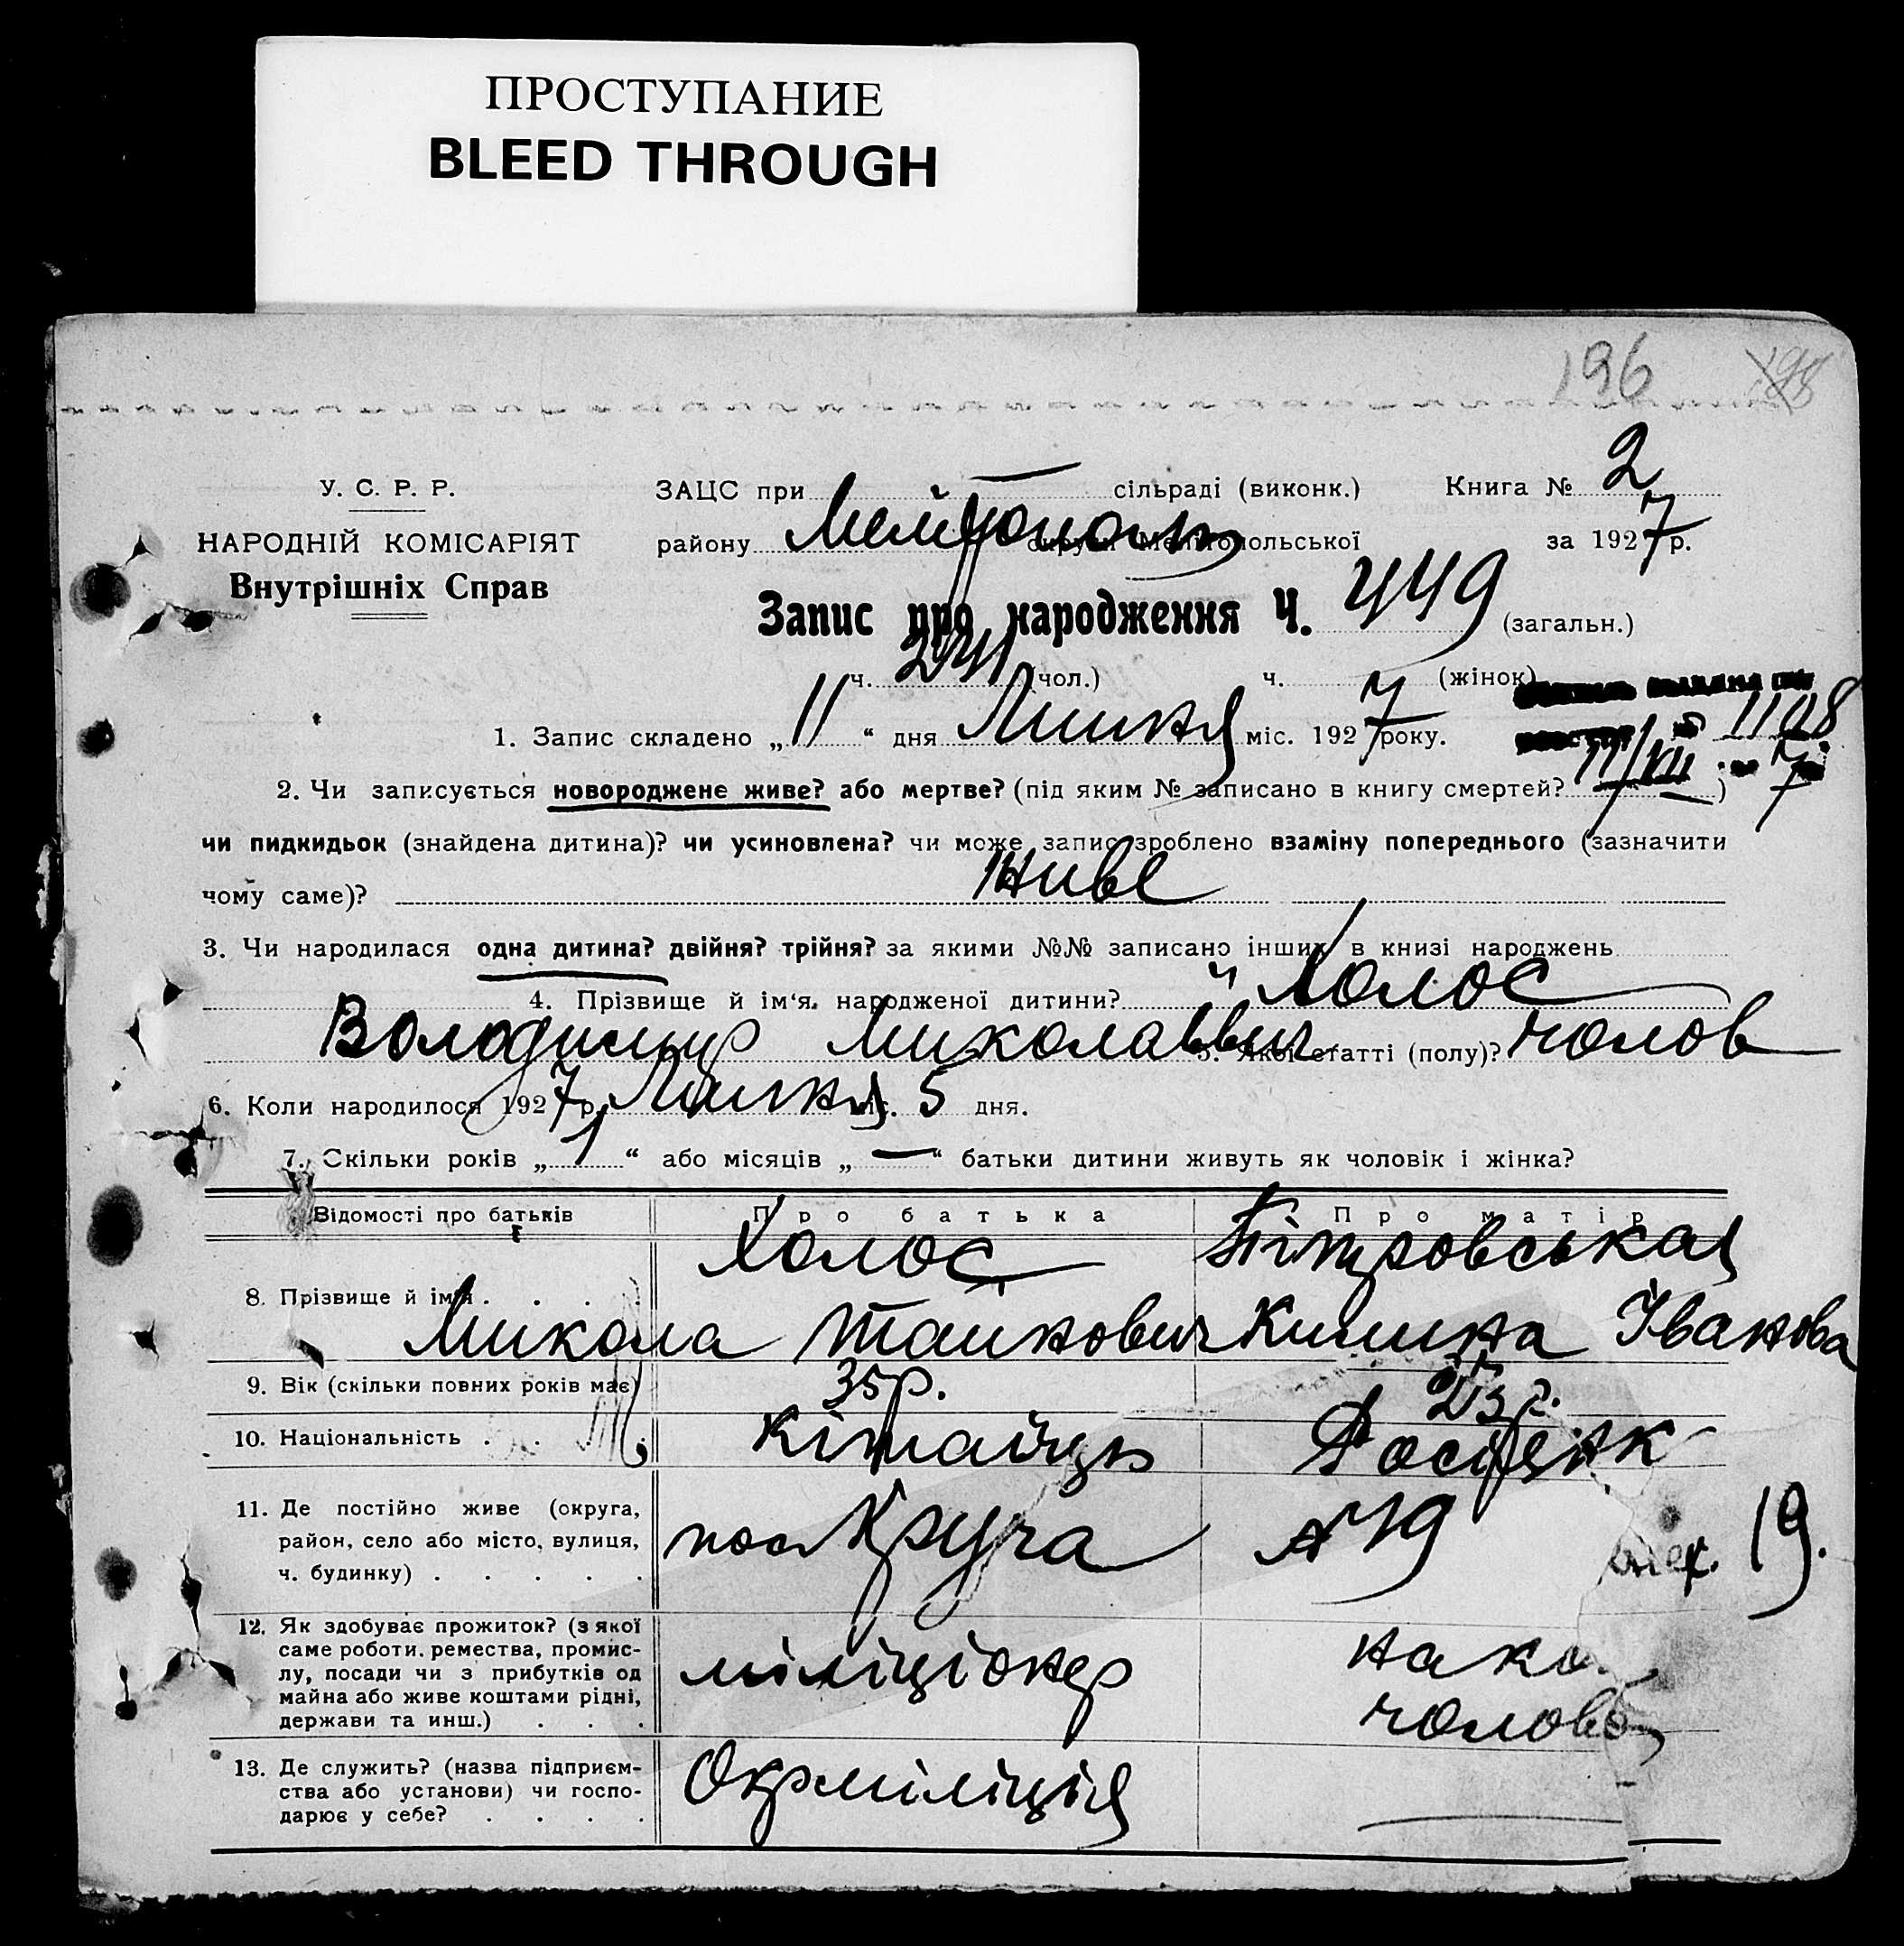 ПРОСТУПАНИЕ
BLEED THROUGH
196 198
У. С. Р. Р.
НАРОДНІЙ КОМІСАРІЯТ
Внутрішніх Справ
ЗАЦС при сільраді (виконк.) Книга № 2
району Мелітополь округи Мелітопольської за 1927 р.
Запис про народження Ч. 449 (загальн.)
ч. 241 (чол.) ч. (жінок)
1. Запис складено „11“ дня Липня міс. 1927 року.
1108
11/VII 7
2. Чи записується новороджене живе? або мертве? (під яким № записано в книгу смертей? )
чи пидкидьок (знайдена дитина)? чи усиновлена? чи може запис зроблено взаміну попереднього (зазначити
чому саме)? Живе
3. Чи народилася одна дитина? двійня? трійня? за якими №№ записано інших в книзі народжень
4. Прізвище й ім'я народженої дитини? Холос
Володимир Миколаївич 5. Якої статті (полу)? чолов
6. Коли народилося 1927 р. Липня міс. 5 дня.
7. Скільки років „1“ або місяців „—“ батьки дитини живуть як чоловік і жінка?
Відомості про батьків Про батька Про матір
8. Прізвище й ім'я . . . . Холос Микола Пітровськая Килина Іванова
9. Вік (скільки повних років має) 35 р. 23 р.
10. Національність . . . . Кітайць Росіянк
11. Де постійно живе (округа,
район, село або місто, вулиця,
ч. будинку) . . . . .
Круча № 19 19.
12. Як здобуває прожиток? (з якої
саме роботи, ремества, промис-
лу, посади чи з прибутків од
майна або живе коштами рідні,
держави та инш.) . . .
міліціонер на ко
чолов
13. Де служить? (назва підприєм-
ства або установи) чи госпо-
дарює у себе? . . . .
Окрміліція